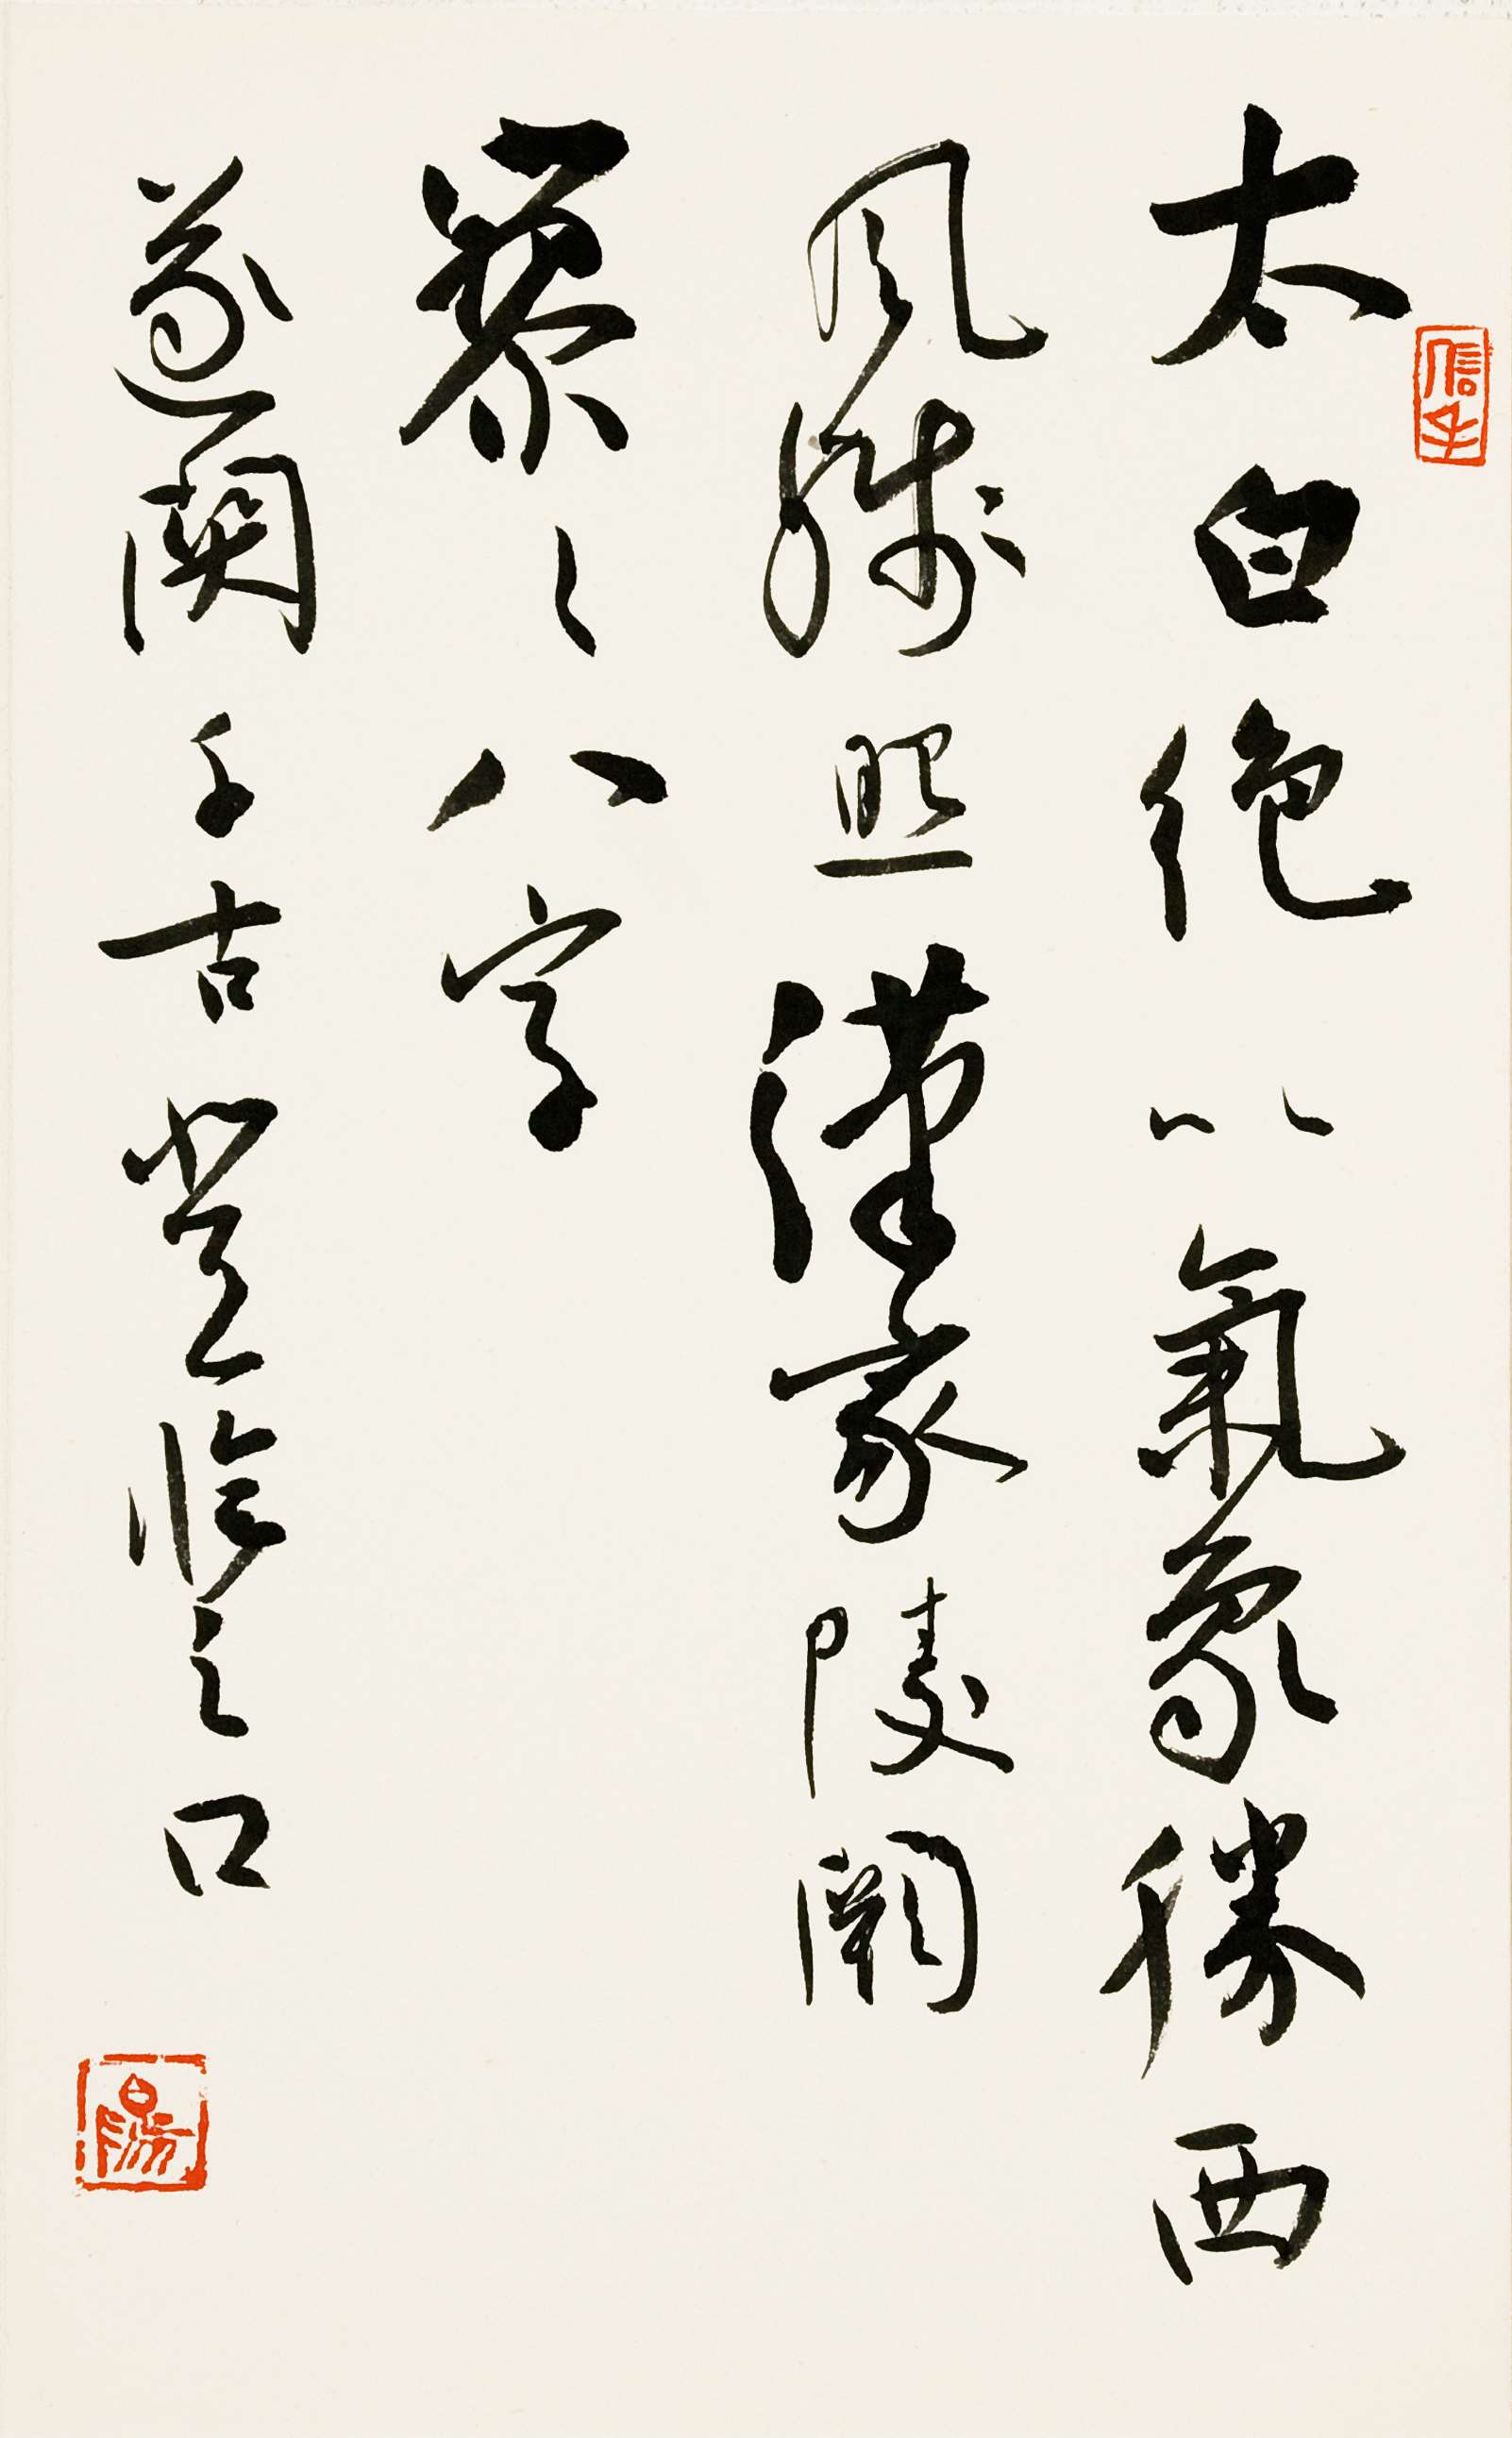 信手
太白絕以氣象勝西
風殘照漢家陵闕
寥々八字
遂關千古登臨之口